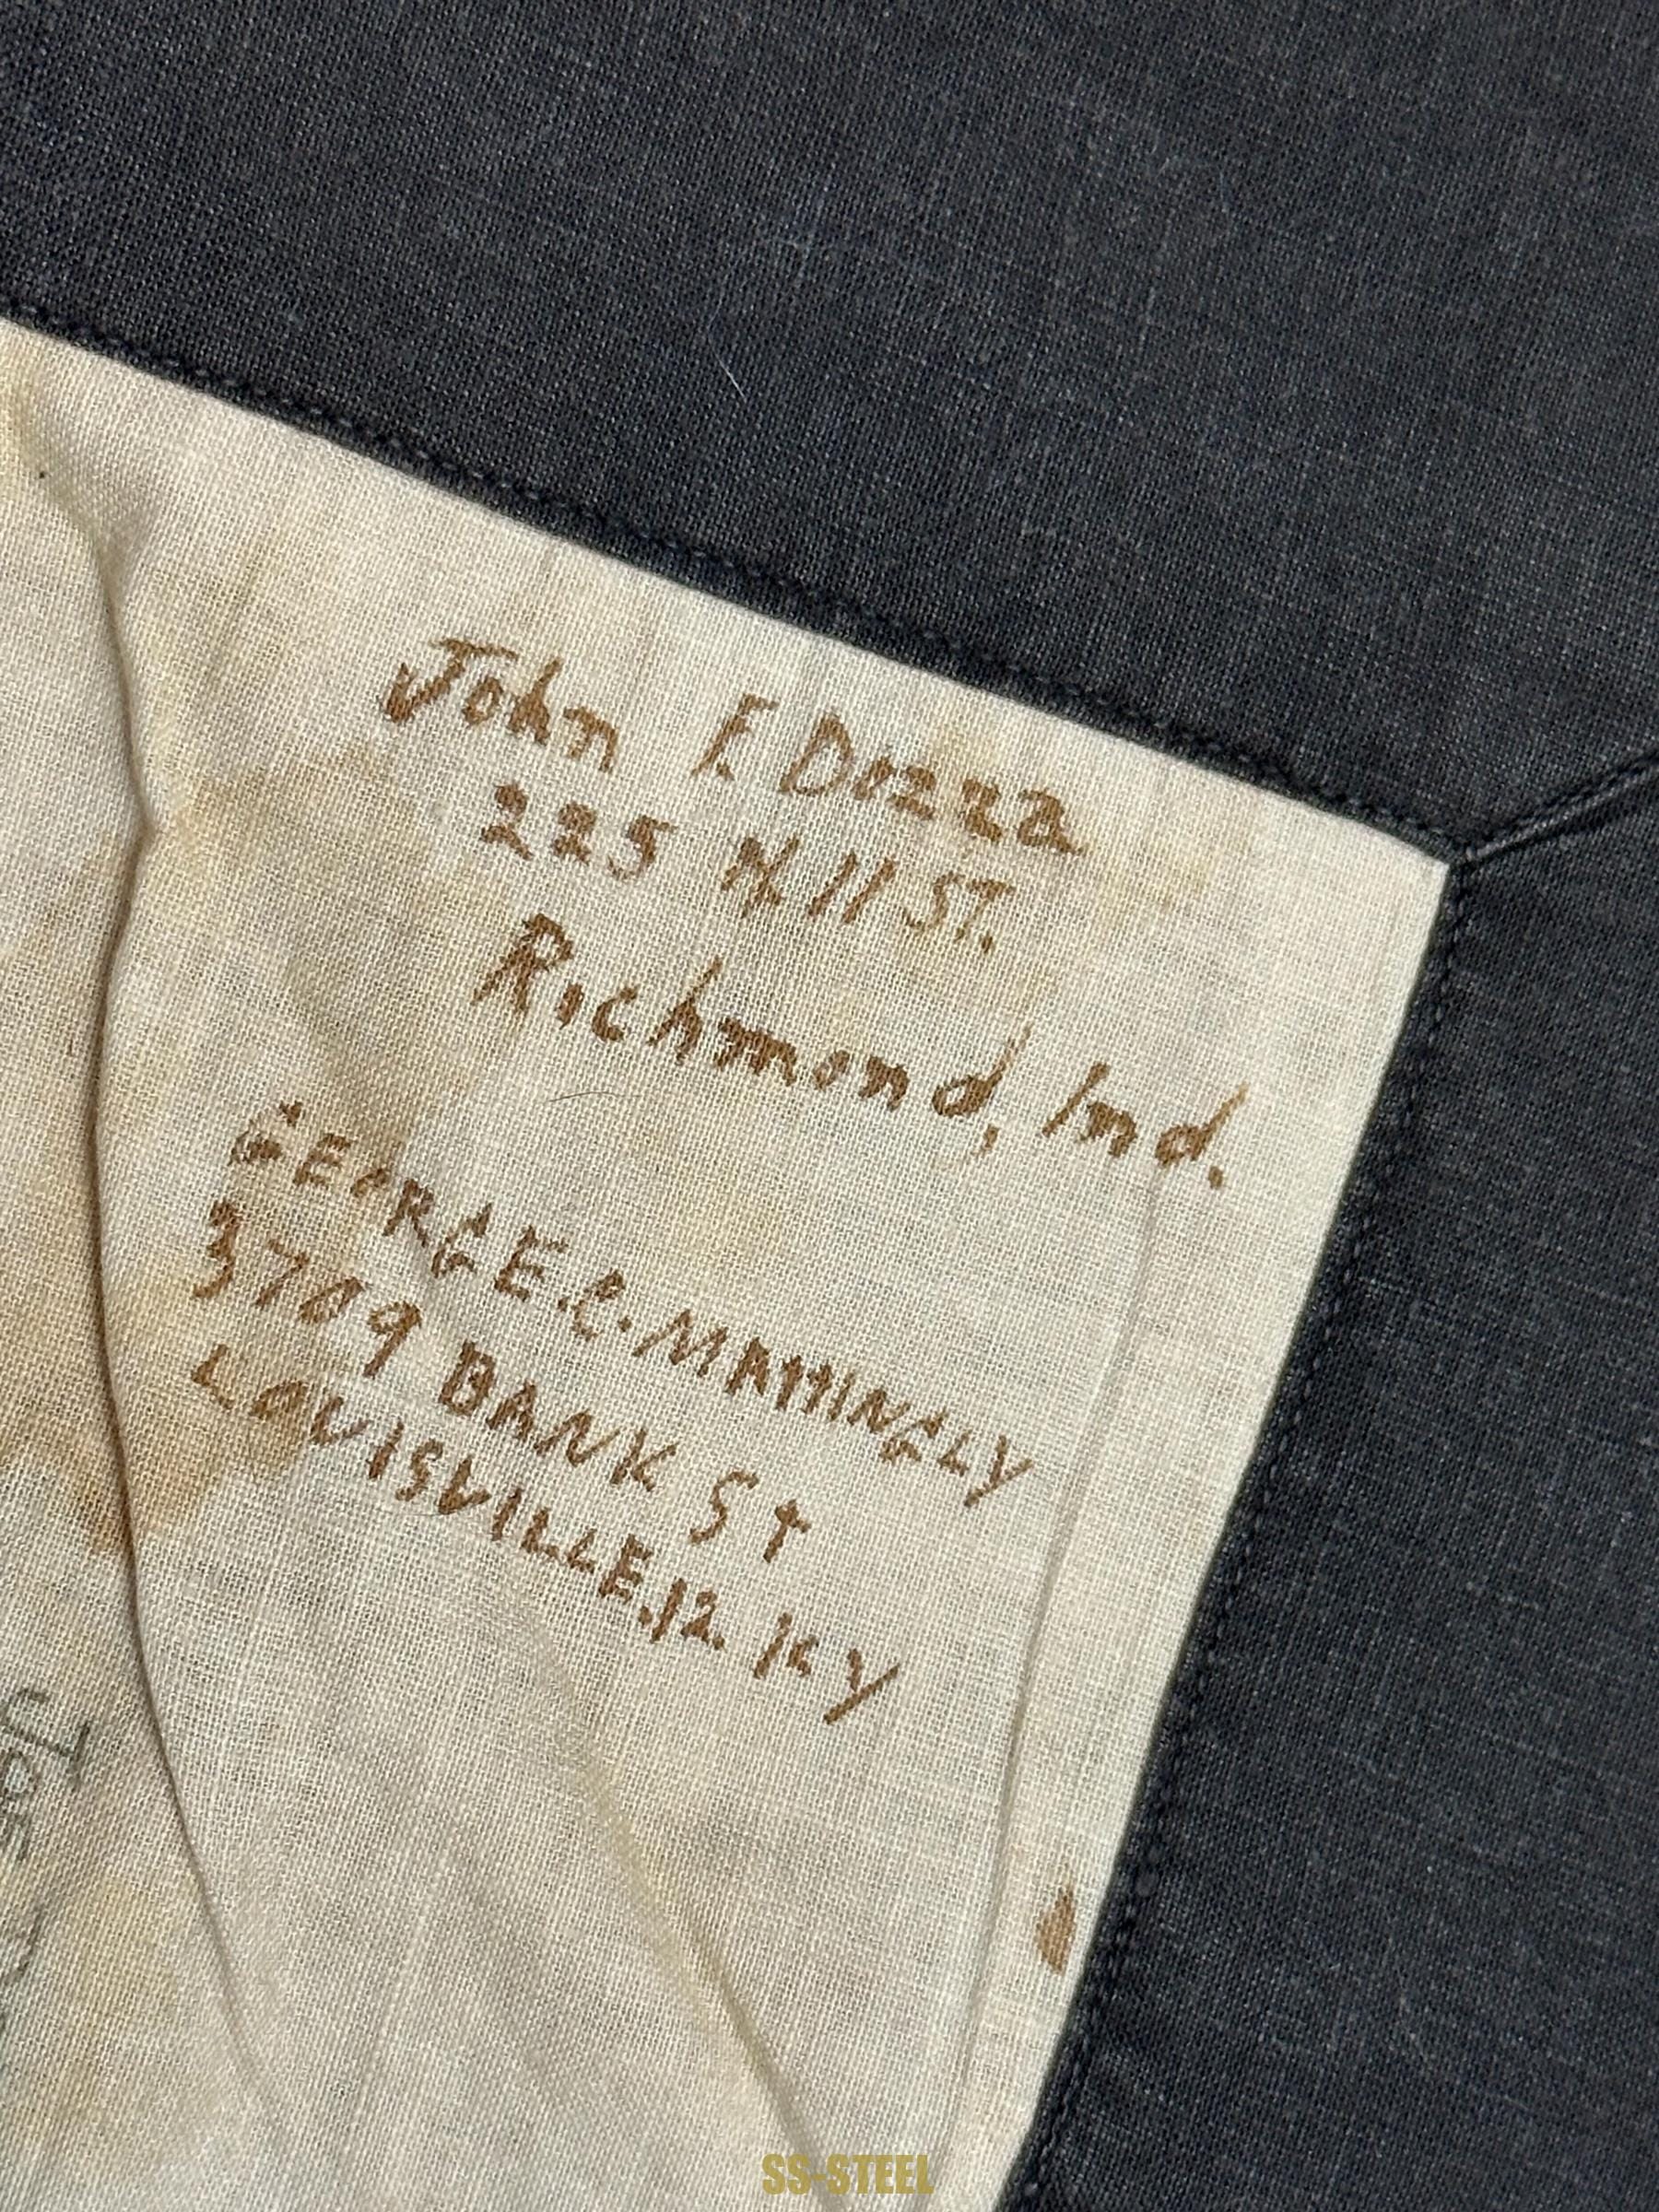 John F. Dozza
225 N. 11 ST.
Richmond, Ind.
GEORGE.C.MATTINGLY
3709 BANK St
LOUISVILLE.12. KY
SS-STEEL